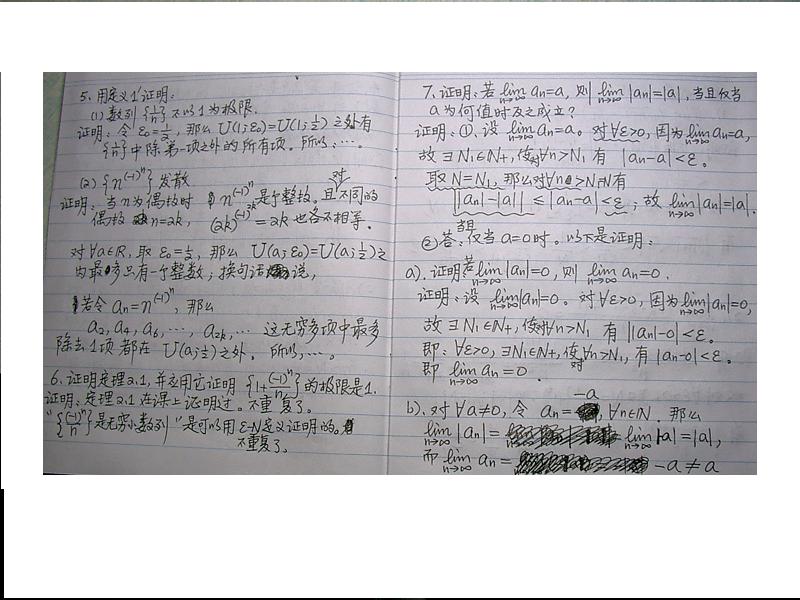 5. 用定义1'证明:
(1) 数列 {1/n} 不以1为极限.
证明: 令 ε₀=1/2, 那么 U(1;ε₀)=U(1;1/2) 之外有
{1/n} 中除第一项之外的所有项。所以, ….
(2) {n^(-1)^n} 发散
对
证明: 当 n 为偶数时 n^(-1)^n 是个整数。且不同的
偶数 n=2k, (2k)^(-1)^2k = 2k 也各不相等.
对∀a∈R, 取 ε₀=1/2, 那么 U(a;ε₀)=U(a;1/2) 之
内最多只有一个整数; 换句话说,
若令 an=n^(-1)^n, 那么
a₂, a₄, a₆, …, a₂ₖ, … 这无穷多项中最多
除去1项都在 U(a;1/2) 之外. 所以, ….
6. 证明定理2.1, 并应用它证明 {1+(-1)^n/n} 的极限是1.
证明: 定理2.1 在课上证明过。不重复了。
"{(-1)^n/n} 是无穷小数列" 是可以用 ε-N 定义证明的。
不重复了。
7. 证明: 若 lim n→∞ an=a, 则 lim n→∞ |an|=|a|, 当且仅当
a 为何值时反之成立?
证明: ①. 设 lim n→∞ an=a。对∀ε>0, 因为 lim n→∞ an=a,
故 ∃N₁∈N+, 对∀n>N₁ 有 |an-a|<ε。
取 N=N₁, 那么对∀n>N 有
||an|-|a|| ≤ |an-a| < ε; 故 lim n→∞ |an|=|a|.
当且
② 答: 仅当 a=0 时。以下是证明:
a). 证明若 lim n→∞ |an|=0, 则 lim n→∞ an=0.
证明: 设 lim n→∞ |an|=0. 对∀ε>0, 因为 lim n→∞ |an|=0,
故 ∃N₁∈N+, 对∀n>N₁ 有 ||an|-0|<ε。
即: ∀ε>0, ∃N₁∈N+, ∀n>N₁, 有 |an-0|<ε。
对
即 lim n→∞ an=0.
-a
b). 对∀a≠0, 令 an= , ∀n∈N. 那么
lim n→∞ |an|= = lim n→∞ |-a| = |a|,
而 lim n→∞ an= -a ≠ a